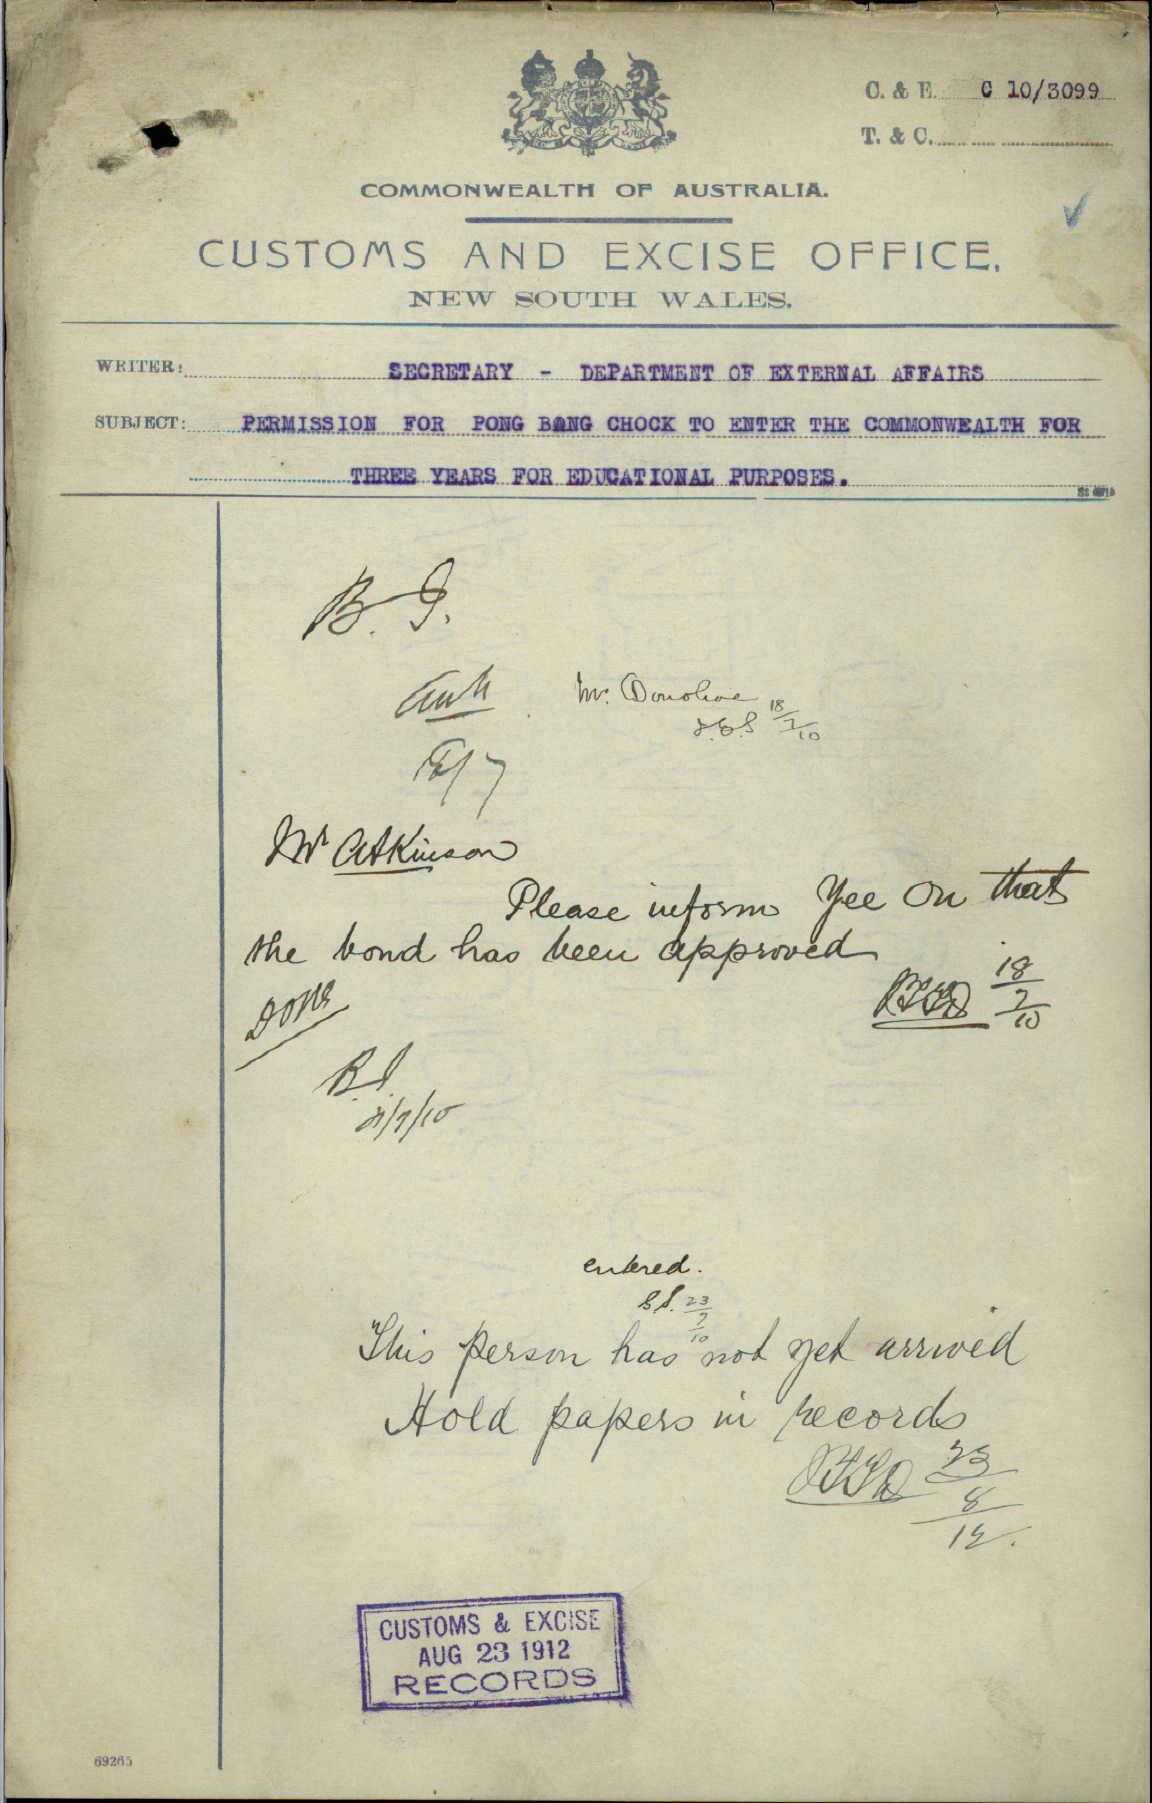 C. & E. C 10/3099
T. & C.
COMMONWEALTH OF AUSTRALIA.
CUSTOMS AND EXCISE OFFICE,
NEW SOUTH WALES.
WRITER: SECRETARY - DEPARTMENT OF EXTERNAL AFFAIRS
SUBJECT: PERMISSION FOR PONG BANG CHOCK TO ENTER THE COMMONWEALTH FOR
THREE YEARS FOR EDUCATIONAL PURPOSES.
B. I.
Mr. Donohoe
18/7/10
Mr Atkinson
Please inform Yee On that
the bond has been approved
18/7/10
Done
B.I.
21/7/10
entered.
23/7/10
This person has not yet arrived
Hold papers in records
23/8/12.
CUSTOMS & EXCISE
AUG 23 1912
RECORDS
69265